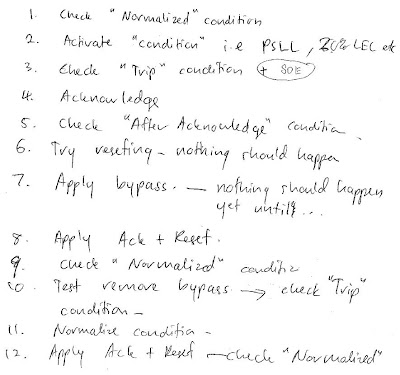 1. Check "Normalized" condition
2. Activate "condition" i.e PSLL, 20% LEL etc
3. Check "Trip" condition + SOE
4. Acknowledge
5. Check "After Acknowledge" condition.
6. Try reseting - nothing should happen
7. Apply bypass. — nothing should happen
yet until ...
8. Apply Ack + Reset.
9. Check "Normalized" condition
10. Test remove bypass → check "Trip"
condition -
11. Normalize condition -
12. Apply Ack + Reset - check "Normalized"